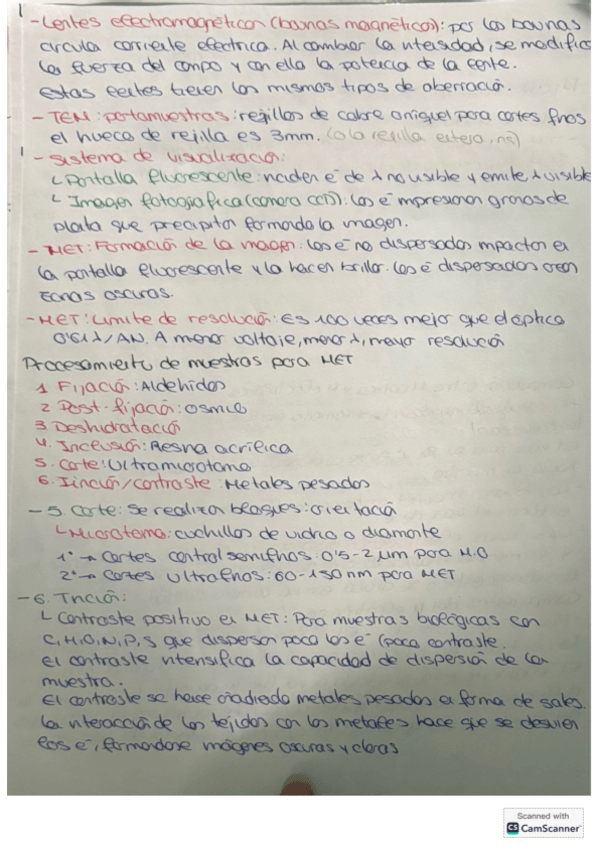 - Lentes electromagnéticos (bovinas magnéticas): por las bovinas
circula corriente eléctrica. Al cambiar la intensidad, se modifica
la fuerza del campo y con ella la potencia de la lente.
Estas lentes tienen los mismos tipos de aberración.
- TEM: portamuestras: rejillas de cobre o niquel para cortes finos
el hueco de rejilla es 3mm. (o la rejilla entera, ns)
- Sistema de visualización:
└ Pantalla fluorescente: inciden e⁻ de λ no visible y emite λ visible
└ Imagen fotográfica (cámara CCD): los e⁻ impresionan granos de
plata que precipitan formando la imagen.
- MET: Formación de la imagen: los e⁻ no dispersados impactan en
la pantalla fluorescente y la hacen brillar. los e⁻ dispersados crean
zonas oscuras.
- MET: Límite de resolución: Es 100 veces mejor que el óptico
0'61 λ/AN. A menor voltaje, menor λ, mayor resolución
Procesamiento de muestras para MET
1 Fijación: Aldehidos
2 Post-fijación: osmio
3 Deshidratación
4. Inclusión: Resina acrílica
5. Corte: Ultramicrotomo
6. Tinción/contraste: Metales pesados
- 5. Corte: Se realiza bloques: orientación
└ Microtomo: cuchillos de vidrio o diamante
1º → Cortes control semifinos: 0'5-2 μm para M.O
2º → Cortes Ultrafinos: 60-150 nm para MET
- 6. Tinción:
└ Contraste positivo en MET: Para muestras biológicas con
C, H, O, N, P, S que dispersan poco los e⁻ (poco contraste.
El contraste intensifica la capacidad de dispersión de la
muestra.
El contraste se hace añadiendo metales pesados en forma de sales.
La interacción de los tejidos con los metales hace que se desvien
los e⁻, formandose imágenes oscuras y claras
Scanned with
CS CamScanner